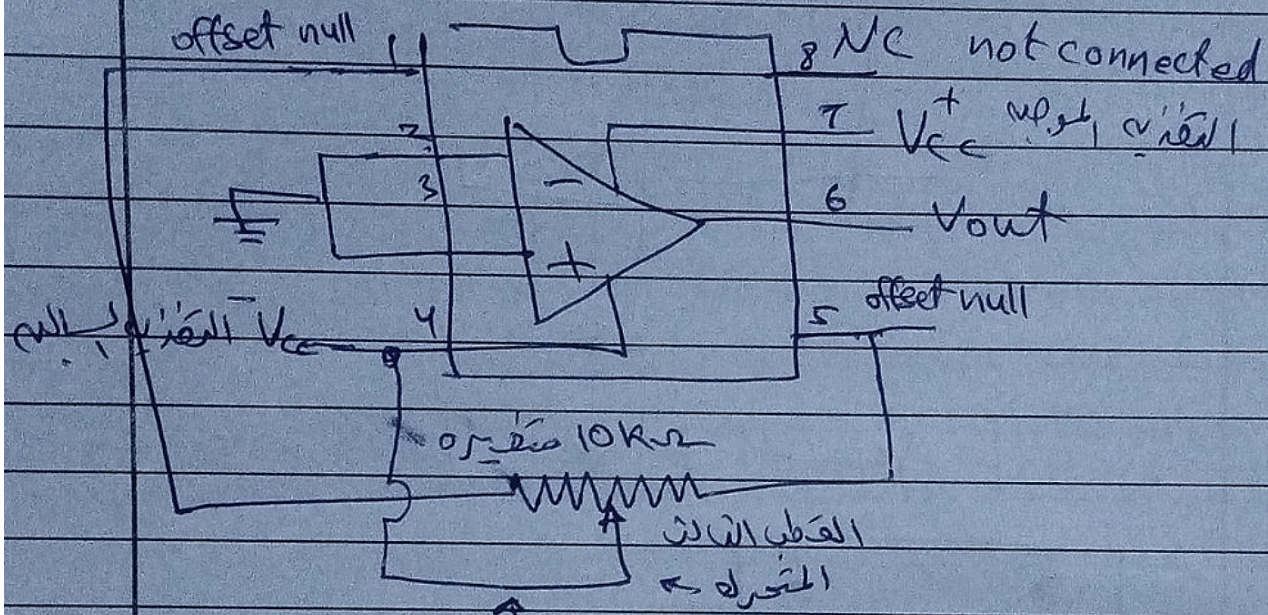 offset null 1
8 NC not connected
2
7 Vcc+ التغذيه الموجبه
3
6 Vout
5 offset null
4 Vcc- التغذيه السالبه
-
+
10KΩ متغيره
القطب الثالث
المتحرك